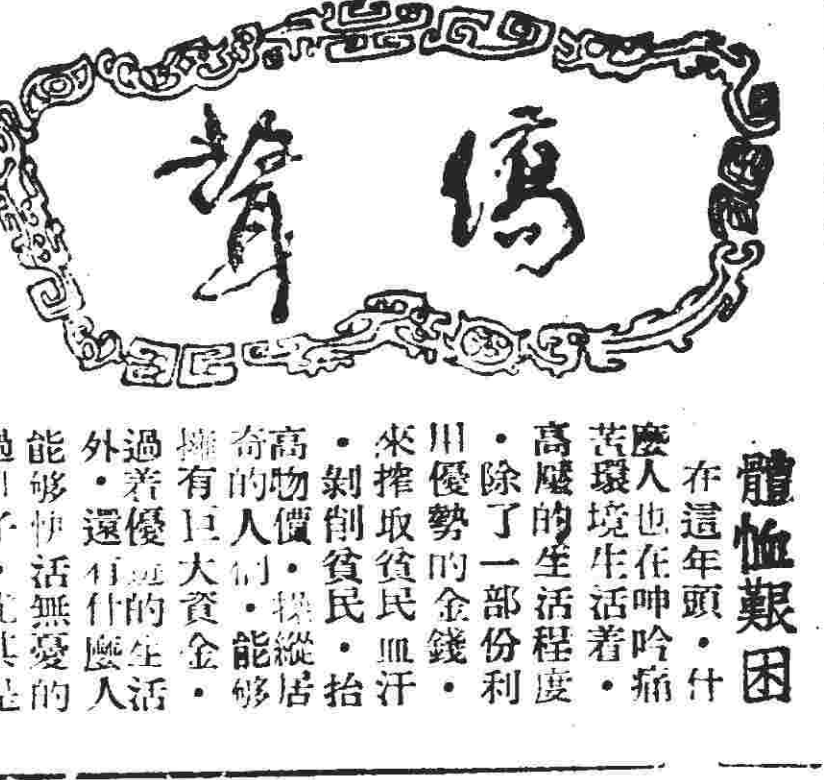 僑聲
體恤艱困
在這年頭・什
麼人也在呻吟痛
苦環境生活着・
高壓的生活程度
・除了一部份利
用優勢的金錢・
來搾取貧民血汗
・剝削貧民・抬
高物價・操縱居
奇的人們・能够
擁有巨大資金・
過着優逸的生活
外・還有什麼人
能够快活無憂的